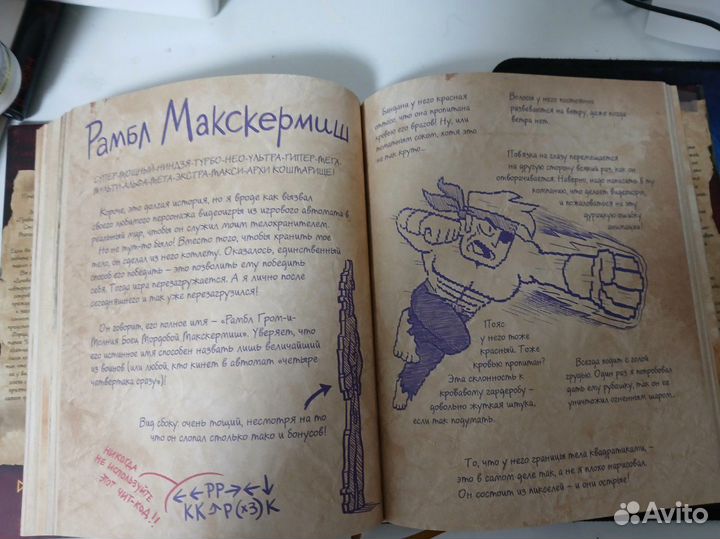 Рамбл Макскермиш
СУПЕР-МОЩНЫЙ-НИНДЗЯ-ТУРБО-НЕО-УЛЬТРА-ГИПЕР-МЕГА-
МУЛЬТИ-АЛЬФА-МЕТА-ЭКСТРА-МАКСИ-АРХИ КОШТАРИЩЕ!
Короче, это долгая история, но я вроде как вызвал
своего любимого персонажа видеоигры из игрового автомата в
реальный мир, чтобы он служил моим телохранителем.
Но не тут-то было! Вместо того, чтобы хранить мое
тело, он сделал из него котлету. Оказалось, единственный
способ его победить – это позволить ему победить
себя. Тогда игра перезагружается. А я лично после
сегодняшнего и так уже перезагрузился!
Он говорит, его полное имя – «Рамбл Гром-и-
Молния Боец Мордобой Макскермиш». Уверяет, что
его истинное имя способен назвать лишь величайший
из воинов (или любой, кто кинет в автомат «четыре
четвертака сразу»)!
Вид сбоку: очень тощий, несмотря на то
что он слопал столько тако и бонусов!
НИКОГДА
НЕ ИСПОЛЬЗУЙТЕ
ЭТОТ ЧИТ-КОД!!
←←PP→←↓
KK↑P(x3)K
Бандана у него красная
оттого, что она пропитана
кровью его врагов! Ну, или
томатным соком, хотя это
не так круто...
Волосы у него постоянно
развеваются на ветру, даже когда
ветра нет.
Повязка на глазу перемещается
на другую сторону всякий раз, как он
отворачивается. Наверно, надо написать в ту
компанию, что делает видеоигры,
и пожаловаться на эту
дурацкую ошибку
анимации!
Пояс
у него тоже
красный. Тоже
кровью пропитан?
Эта склонность к
кровавому гардеробу –
довольно жуткая штука,
если так подумать.
Всегда ходит с голой
грудью. Один раз я попробовал
дать ему рубашку, так он ее
уничтожил огненным шаром.
То, что у него границы тела квадратиками, –
это в самом деле так, а не я плохо нарисовал.
Он состоит из пикселей – и они острые!
Avito